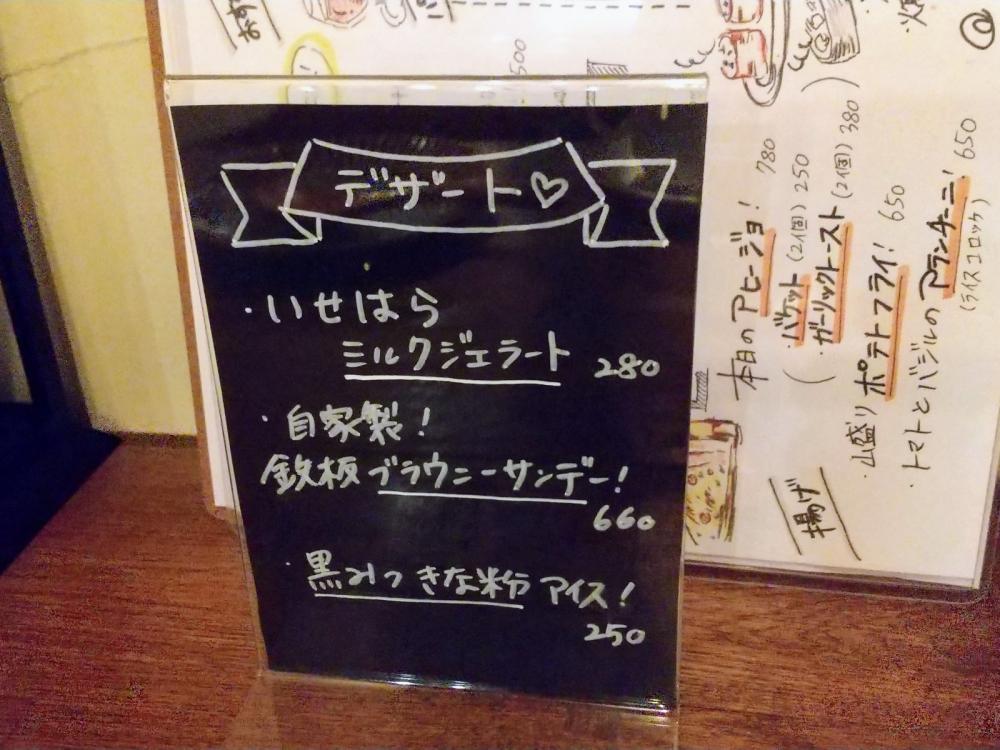 デザート♡
・いせはら
ミルクジェラート 280
・自家製！
鉄板ブラウニーサンデー！
660
・黒みつきな粉アイス！
250
500
本日のアヒージョ！ 780
(・バケット (2個) 250
・ガーリックトースト (2個) 380)
揚げ
・山盛りポテトフライ！ 650
・トマトとバジルのアランチーニ！ 650
(ライスコロッケ)